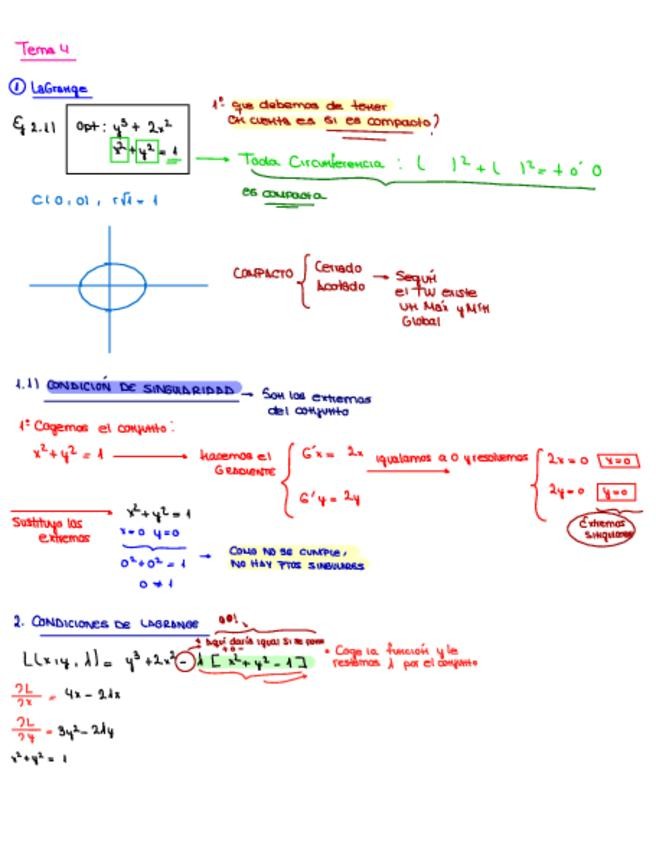 Tema 4
① Lagrange
Ej 2.1) Opt: y³ + 2x²
x² + y² = 1
1º que debemos de tener
en cuenta es si es compacto?
→ Toda Circunferencia : ( )² + ( )² = + o´ 0
es compacta
C(0,0), r√1 = 1
COMPACTO { Cerrado
Acotado
→ Según
el TW existe
un Máx y Mín
Global
1.1) CONDICIÓN DE SINGULARIDAD → Son los extremos
del conjunto
1º Cogemos el conjunto:
x² + y² = 1 → hacemos el
GRADIENTE
{ G'x = 2x
G'y = 2y
igualamos a 0 y resolvemos
{ 2x = 0 x=0
2y = 0 y=0
Extremos
singulares
Sustituyo los
extremos
→ x² + y² = 1
x=0 y=0
0² + 0² = 1
0 ≠ 1
→ COMO NO SE CUMPLE,
NO HAY PTOS SINGULARES
2. CONDICIONES DE LAGRANGE
OO!
* Aquí daría igual si se pone
+ o -
L(x,y,λ) = y³ + 2x² - λ [x² + y² - 1]
• Coge la función y le
restamos λ por el conjunto
∂L/∂x = 4x - 2λx
∂L/∂y = 3y² - 2λy
x² + y² = 1